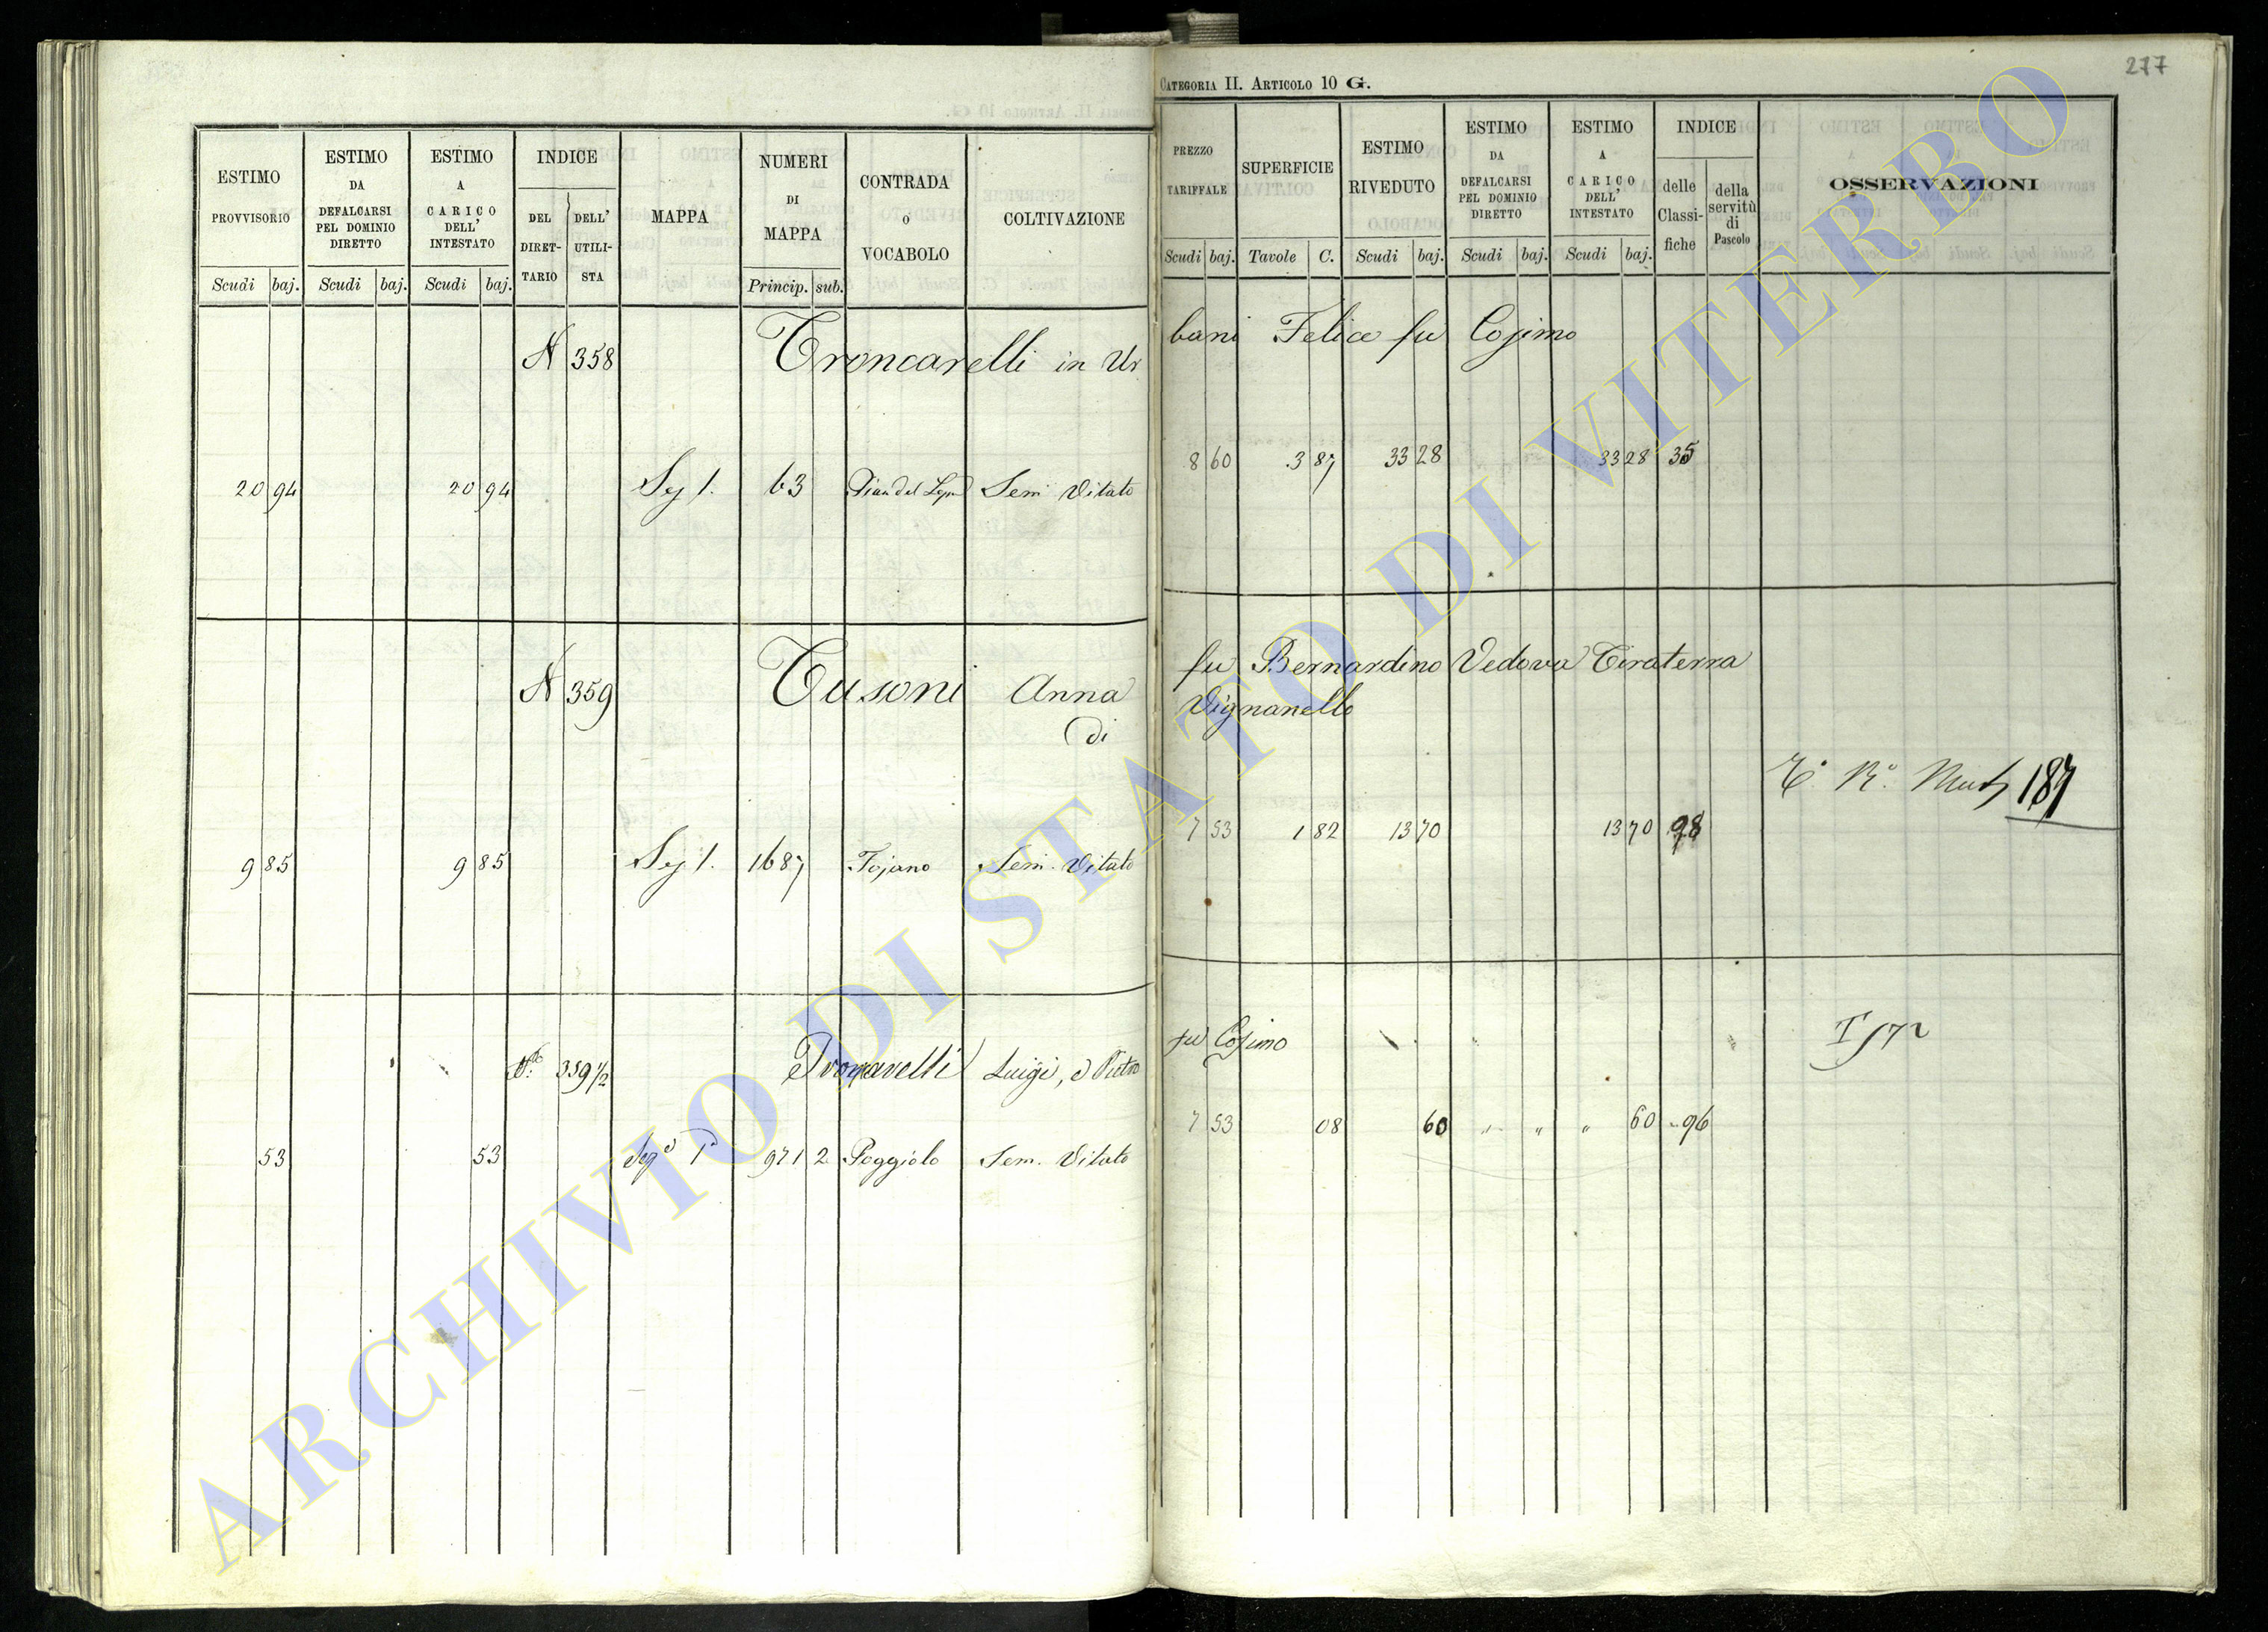 277
CATEGORIA II. ARTICOLO 10 G.
ESTIMO PROVVISORIO Scudi baj.
ESTIMO DA DEFALCARSI PEL DOMINIO DIRETTO Scudi baj.
ESTIMO A CARICO DELL' INTESTATO Scudi baj.
INDICE DEL DIRET-TARIO DELL' UTILI-STA
MAPPA
NUMERI DI MAPPA Princip. sub.
CONTRADA O VOCABOLO
COLTIVAZIONE
PREZZO TARIFFALE Scudi baj.
SUPERFICIE Tavole C.
ESTIMO RIVEDUTO Scudi baj.
ESTIMO DA DEFALCARSI PEL DOMINIO DIRETTO Scudi baj.
ESTIMO A CARICO DELL' INTESTATO Scudi baj.
INDICE delle Classi-fiche della servitù di Pascolo
OSSERVAZIONI
N 358 Troncarelli in Ur bani Felice fu Cosimo
20 94 20 94 Sez 1. 63 Pian del Sem Vitato 8 60 3 87 33 28 33 28 35
N 359 Tusoni Anna fu Bernardino Vedova Tiraterra
di Vignanello
187
9 85 9 85 Sez 1. 1687 Fojano Sem. Vitato 7 53 1 82 13 70 13 70 98
N.º 359 1/2 Luigi, e Pietro fu Cosimo
53 53 Sez 1ª 971 2 Poggiolo Sem. Vitato 7 53 08 60 " " " 60 96
ARCHIVIO DI STATO DI VITERBO